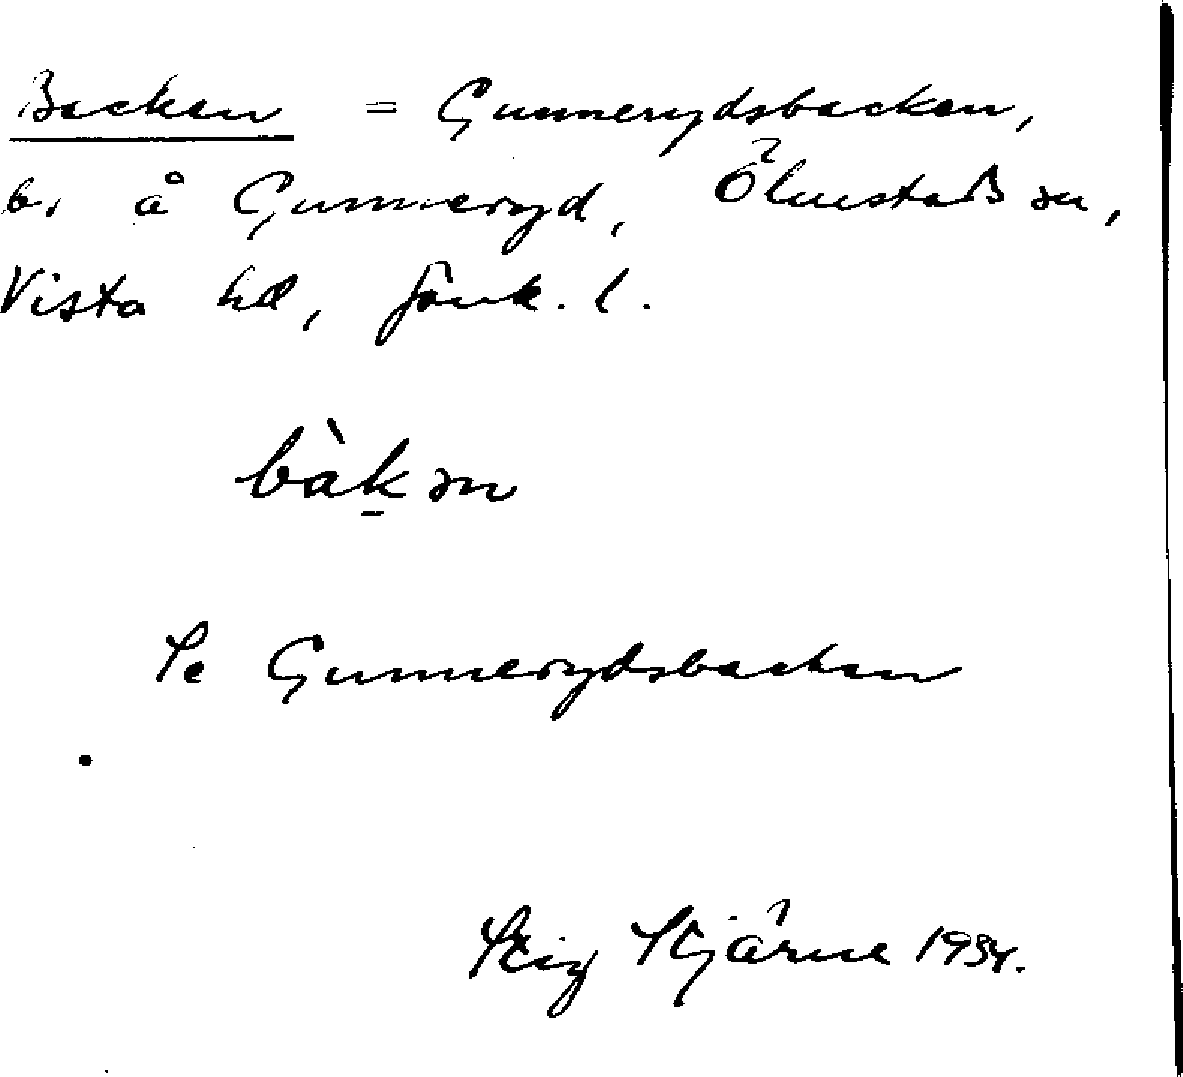 Backen = Gunnerydsbacken,
b. å Gunneryd, Ölmstads sn,
Vista hd, Jönk. l.
bàk̠ən
Se Gunnerydsbacken
Stig Stjärne 1934.